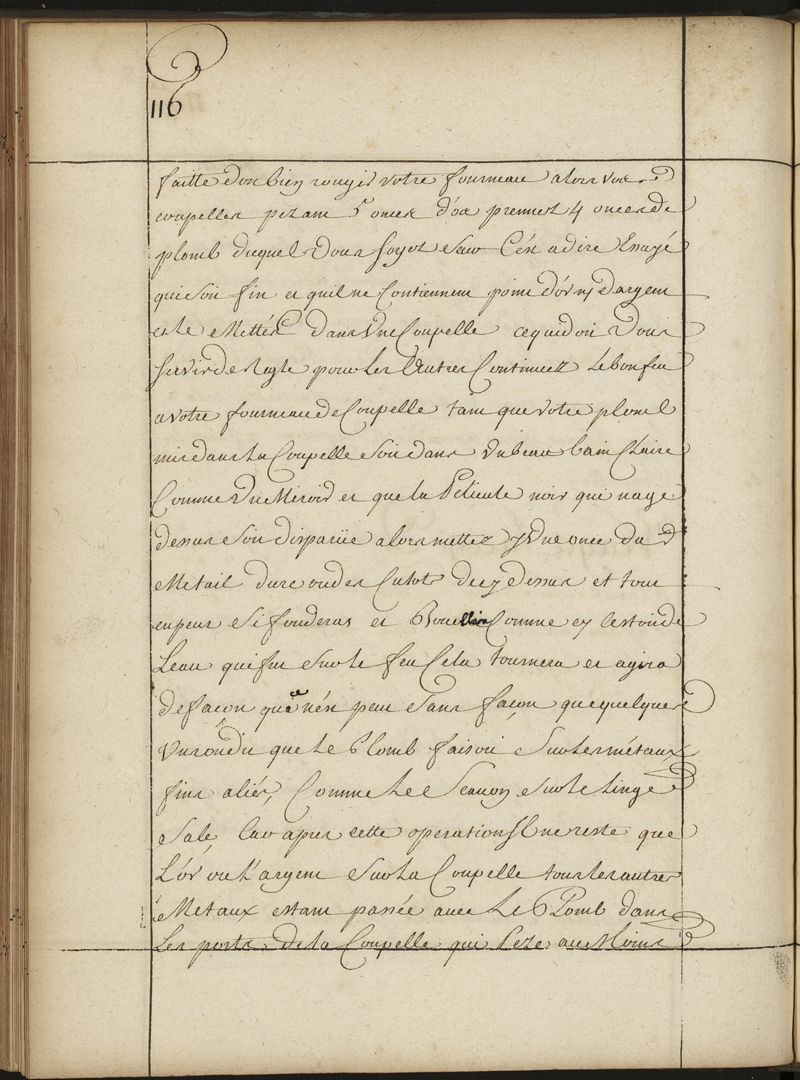 116
faitte donc bien rougir votre fourneau alors vos
coupelles pezant 5 onces d'or prennez 4 onces de
plomb duquel vous soyez seur C'est a dire Essayé
qui soit fin et quil ne Contiennent point d'or nj d'argent
et le Mettés dans Une Coupelle ce qui doit Vous
servir de Regle pour Les Autres Continuez Le bon feu
a votre fourneau de Coupelle tant que votre plomb
mis dans La Coupelle soit dans Un beau bain Claire
Comme Un Miroir et que La Pelicule noir qui nage
dessus soit disparüe alors mettez y Une once du d
Metail dure ou des Culots de cy dessus et tout
en peut si fonderas et Bouellira Comme cy
Leau qui fut sur le feu Cela tournera et agira
de facon que ce n'est peu sans façon que quelques
Uns ont du que Le Plomb faisoit sur Les métaux
fins aliés, Comme Le Scauon sur le Linge
Sale, Car apres cette operations Il ne reste que
L'or ou L'argent sur La Coupelle tous Les autres
Metaux estant passée avec Le Plomb dans
Les ports de La Coupelle qui Peze au Moins